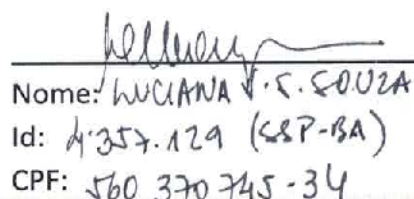 Nome: LUCIANA V. S. SOUZA
Id: 4.357.129 (SSP-BA)
CPF: 560 370 745-34